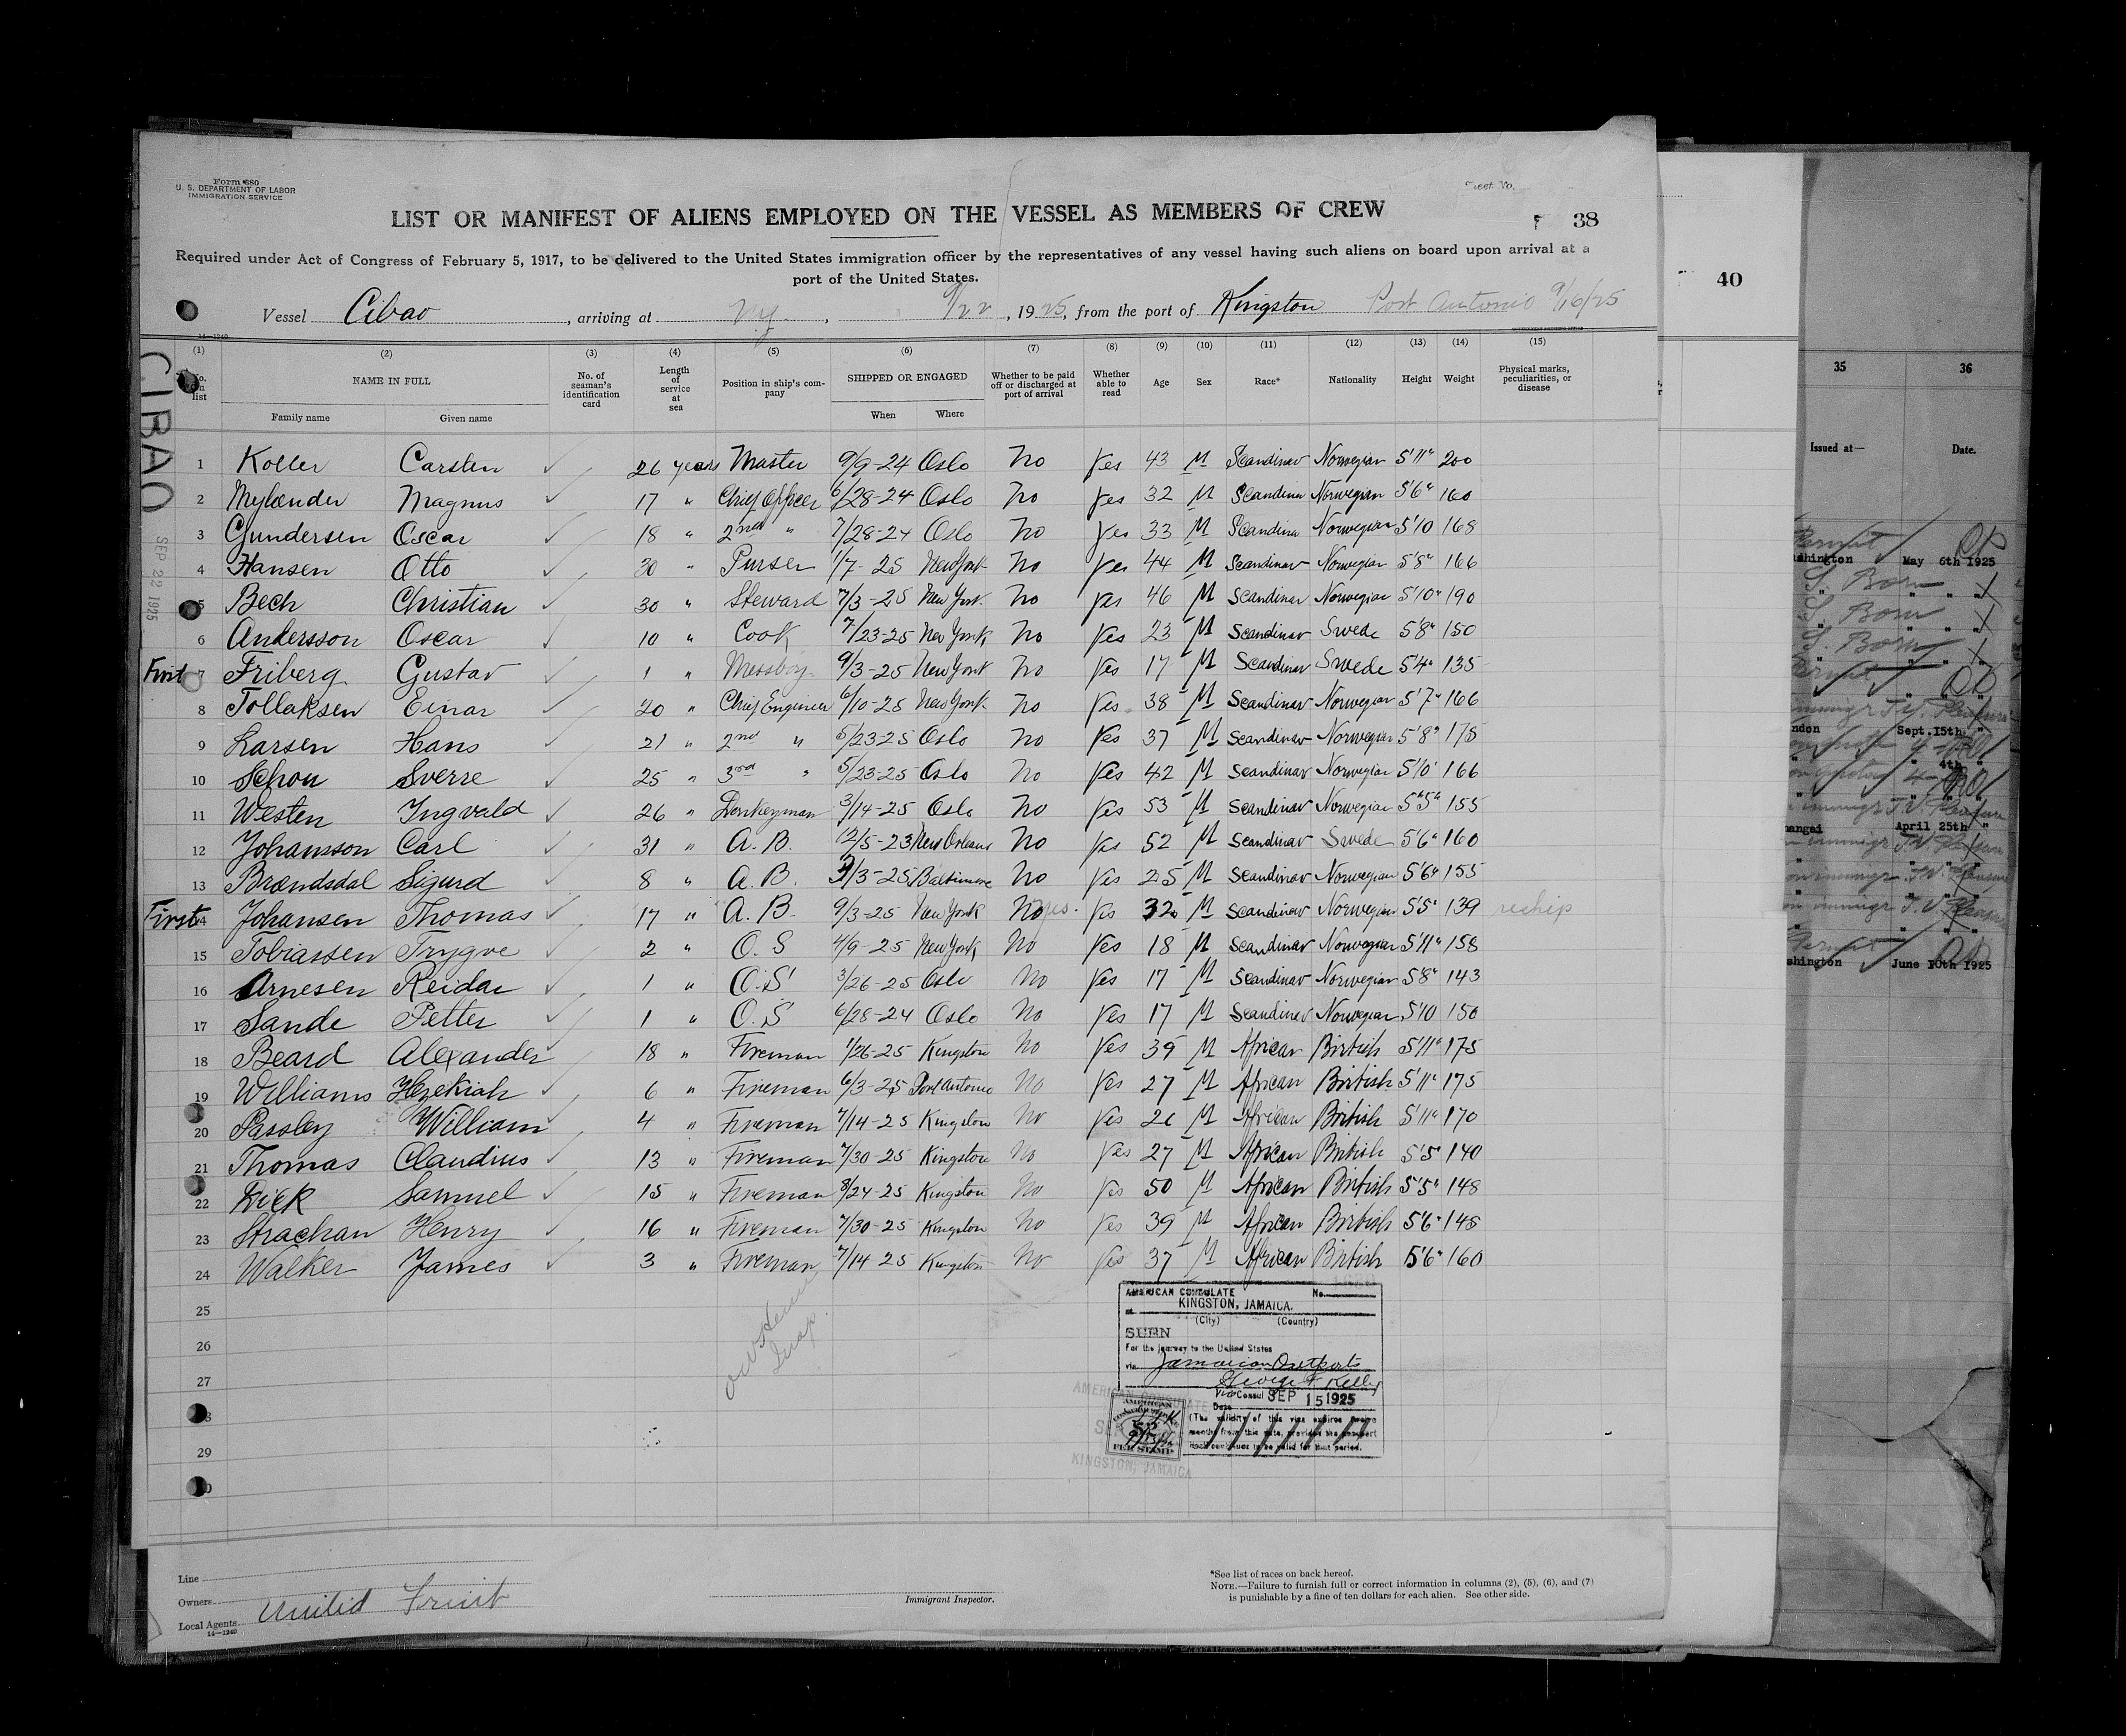 Form 680
U. S. DEPARTMENT OF LABOR
IMMIGRATION SERVICE
LIST OR MANIFEST OF ALIENS EMPLOYED ON THE VESSEL AS MEMBERS OF CREW
38
Required under Act of Congress of February 5, 1917, to be delivered to the United States immigration officer by the representatives of any vessel having such aliens on board upon arrival at a
port of the United States.
Vessel Cibao, arriving at NY, 9/22, 1925, from the port of Kingston Port Antonio 9/16/25
14-1240
(1) (2) (3) (4) (5) (6) (7) (8) (9) (10) (11) (12) (13) (14) (15)
No. on list NAME IN FULL No. of seaman's identification card Length of service at sea Position in ship's company SHIPPED OR ENGAGED Whether to be paid off or discharged at port of arrival Whether able to read Age Sex Race* Nationality Height Weight Physical marks, peculiarities, or disease
Family name Given name When Where
CIBAO
SEP 22 1925
1 Koller Carsten ✓ 26 years Master 9/9-24 Oslo No Yes 43 M Scandinav Norwegian 5'11" 200
2 Mylænder Magnus ✓ 17 " Chief Officer 6/28-24 Oslo No Yes 32 M Scandina Norwegian 5'6" 160
3 Gundersen Oscar ✓ 18 " 2nd " 7/28-24 Oslo No Yes 33 M Scandina Norwegian 5'10 168
4 Hansen Otto ✓ 30 " Purser 1/7-25 New York No Yes 44 M Scandinav Norwegian 5'8" 166
5 Bech Christian ✓ 30 " Steward 7/3-25 New York No Yes 46 M Scandinav Norwegian 5'10" 190
6 Andersson Oscar ✓ 10 " Cook 7/23-25 New York No Yes 23 M Scandinav Swede 5'8" 150
First 7 Friberg Gustav ✓ 1 " Messboy 9/3-25 New York No Yes 17 M Scandinav Swede 5'4" 135
8 Tollaksen Einar ✓ 20 " Chief Engineer 6/10-25 New York No Yes 38 M Scandinav Norwegian 5'7" 166
9 Larsen Hans ✓ 21 " 2nd " 5/23-25 Oslo No Yes 37 M Scandinav Norwegian 5'8" 175
10 Schou Sverre ✓ 25 " 3rd " 5/23-25 Oslo No Yes 42 M Scandinav Norwegian 5'10' 166
11 Westen Ingvald ✓ 26 " Donkeyman 3/14-25 Oslo No Yes 53 M Scandinav Norwegian 5'5" 155
12 Johansson Carl ✓ 31 " A. B. 12/5-23 New Orleans No Yes 52 M Scandinav Swede 5'6" 160
13 Brændsdal Sigurd ✓ 8 " A. B. 3/3-25 Baltimore No Yes 25 M Scandinav Norwegian 5'6" 155
First 14 Johansen Thomas ✓ 17 " A. B. 9/3-25 New York No yes. Yes 32 M Scandinav Norwegian 5'5" 139 reship
15 Tobiassen Trygve ✓ 2 " O. S 4/9-25 New York No Yes 18 M Scandinav Norwegian 5'11" 158
16 Arnesen Reidar ✓ 1 " O. S 3/26-25 Oslo No Yes 17 M Scandinav Norwegian 5'8" 143
17 Sande Petter ✓ 1 " O. S 6/28-24 Oslo No Yes 17 M Scandinav Norwegian 5'10 150
18 Beard Alexander ✓ 18 " Fireman 1/26-25 Kingston No Yes 39 M African British 5'11" 175
19 Williams Hezekiah ✓ 6 " Fireman 6/3-25 Port Antonio No Yes 27 M African British 5'11" 175
20 Passley William ✓ 4 " Fireman 7/14-25 Kingston No Yes M African British 5'11" 170
21 Thomas Claudius ✓ 13 " Fireman 7/30-25 Kingston No Yes 27 M African British 5'5" 140
22 Dick Samuel ✓ 15 " Fireman 8/24-25 Kingston No Yes 50 M African British 5'5" 148
23 Strachan Henry ✓ 16 " Fireman 7/30-25 Kingston No Yes 39 M African British 5'6" 148
24 Walker James ✓ 3 " Fireman 7/14 25 Kingston No Yes 37 M African British 5'6" 160
25
26
27
29
Insp.
AMERICAN CONSULATE No.
at KINGSTON, JAMAICA.
(City) (Country)
SEEN
For the journey to the United States
via Jamaican Outports
George F. Kelly
Vice Consul SEP 15 1925
Date
(The validity of this visa expires twelve
months from this date, provided the passport
continues to be valid for that period.
AMERICAN
FEE STAMP
KINGSTON, JAMAICA
Line
Owners
Local Agents United Fruit
14-1240
Immigrant Inspector.
*See list of races on back hereof.
NOTE.—Failure to furnish full or correct information in columns (2), (5), (6), and (7)
is punishable by a fine of ten dollars for each alien. See other side.
40
35 36
Issued at— Date.
May 6th 1925
S. Born
S. Born
S. Born
Sept. 15th
4th
April 25th
June 10th 1925